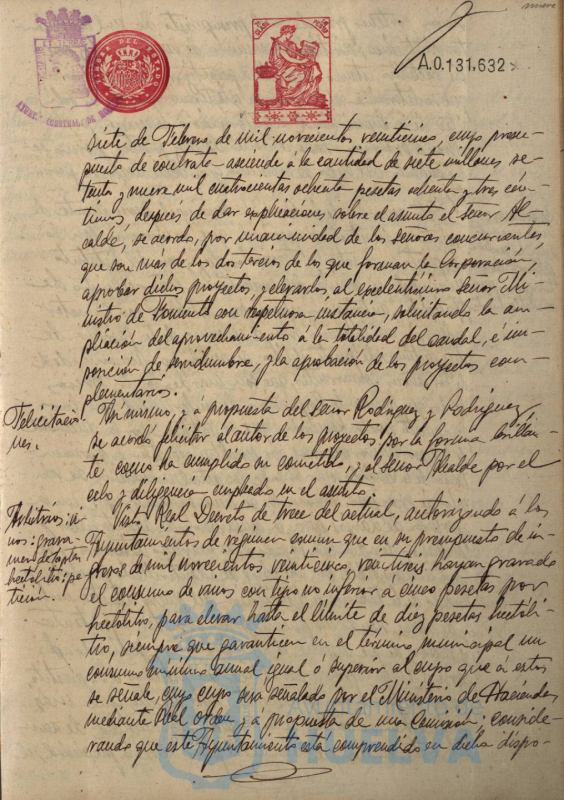 nueve
A.0.131,632
siete de Febrero de mil novecientos veinticinco, cuyo presu-
puesto de contrata asciende á la cantidad de siete millones se-
tenta y nueve mil cuatrocientas ochenta pesetas ochenta y tres cén-
timos, despues de dar explicaciones sobre el asunto el señor Al-
calde, se acordó, por unanimidad de los señores concurrentes
que son mas de los dos tercios de los que forman la Corporación,
aprobar dichos proyectos, y elevarlos al excelentísimo señor Mi-
nistro de Fomento con respetuosa instancia, solicitando la am-
pliación del aprovechamiento á la totalidad del caudal, é im-
posición de servidumbre, y la aprobación de los proyectos com-
plementarios.
Felicitacio-
nes.
Asi mismo, y á propuesta del señor Rodriguez y Rodriguez,
se acordó felicitar al autor de los proyectos por la forma brillan-
te como ha cumplido su cometido, y al señor Alcalde por el
celo y diligencia empleado en el asunto.
Arbitrios: vi-
nos: grava-
men de 10 ptas
hectolitro: pe-
tición.
Visto Real Decreto de trece del actual, autorizando á los
Ayuntamientos de regimen comun que en su presupuesto de in-
gresos de mil novecientos veinticinco, veintiseis hayan gravado
el consumo de vinos con tipo no inferior á cinco pesetas por
hectolitro, para elevar hasta el límite de diez pesetas hectóli-
tro, siempre que garanticen en el término municipal un
consumo mínimo anual igual ó superior al cupo que á estos
se señale, cuyo cupo será señalado por el Ministerio de Hacienda
mediante Real orden y á propuesta de una Comisión; conside-
rando que este Ayuntamiento está comprendido en dicha dispo-
HUELVA